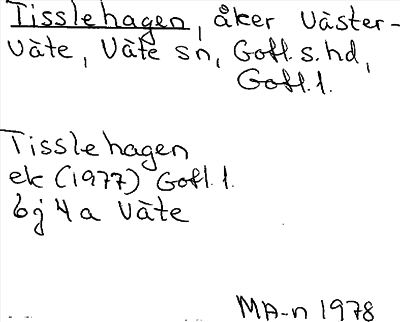 Tisslehagen, åker Väster-
väte, Väte sn, Gotl. s. hd,
Gotl. l.
Tisslehagen
ek (1977) Gotl. l.
6j 4a Väte
MA-n 1978